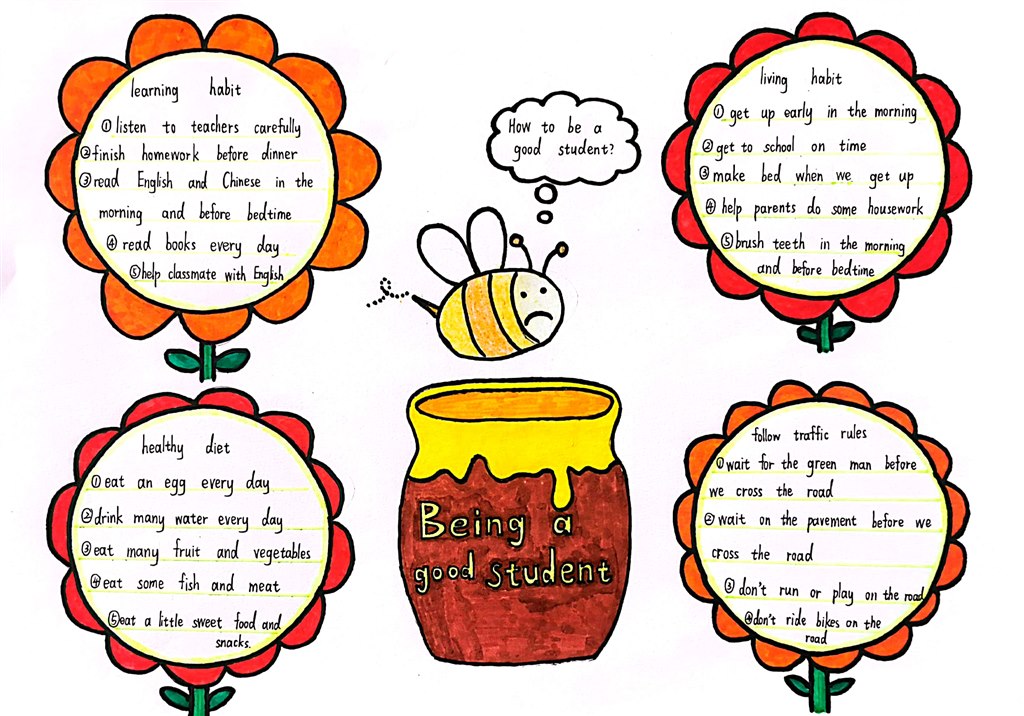 learning habit
①listen to teachers carefully
②finish homework before dinner
③read English and Chinese in the
morning and before bedtime
④ read books every day
⑤help classmate with English
How to be a
good student?
living habit
① get up early in the morning
②get to school on time
③make bed when we get up
④help parents do some housework
⑤brush teeth in the morning
and before bedtime
healthy diet
①eat an egg every day
②drink many water every day
③eat many fruit and vegetables
④eat some fish and meat
⑤eat a little sweet food and
snacks.
Being a
good student
follow traffic rules
①wait for the green man before
we cross the road
②wait on the pavement before we
cross the road
③ don't run or play on the road
④don't ride bikes on the
road